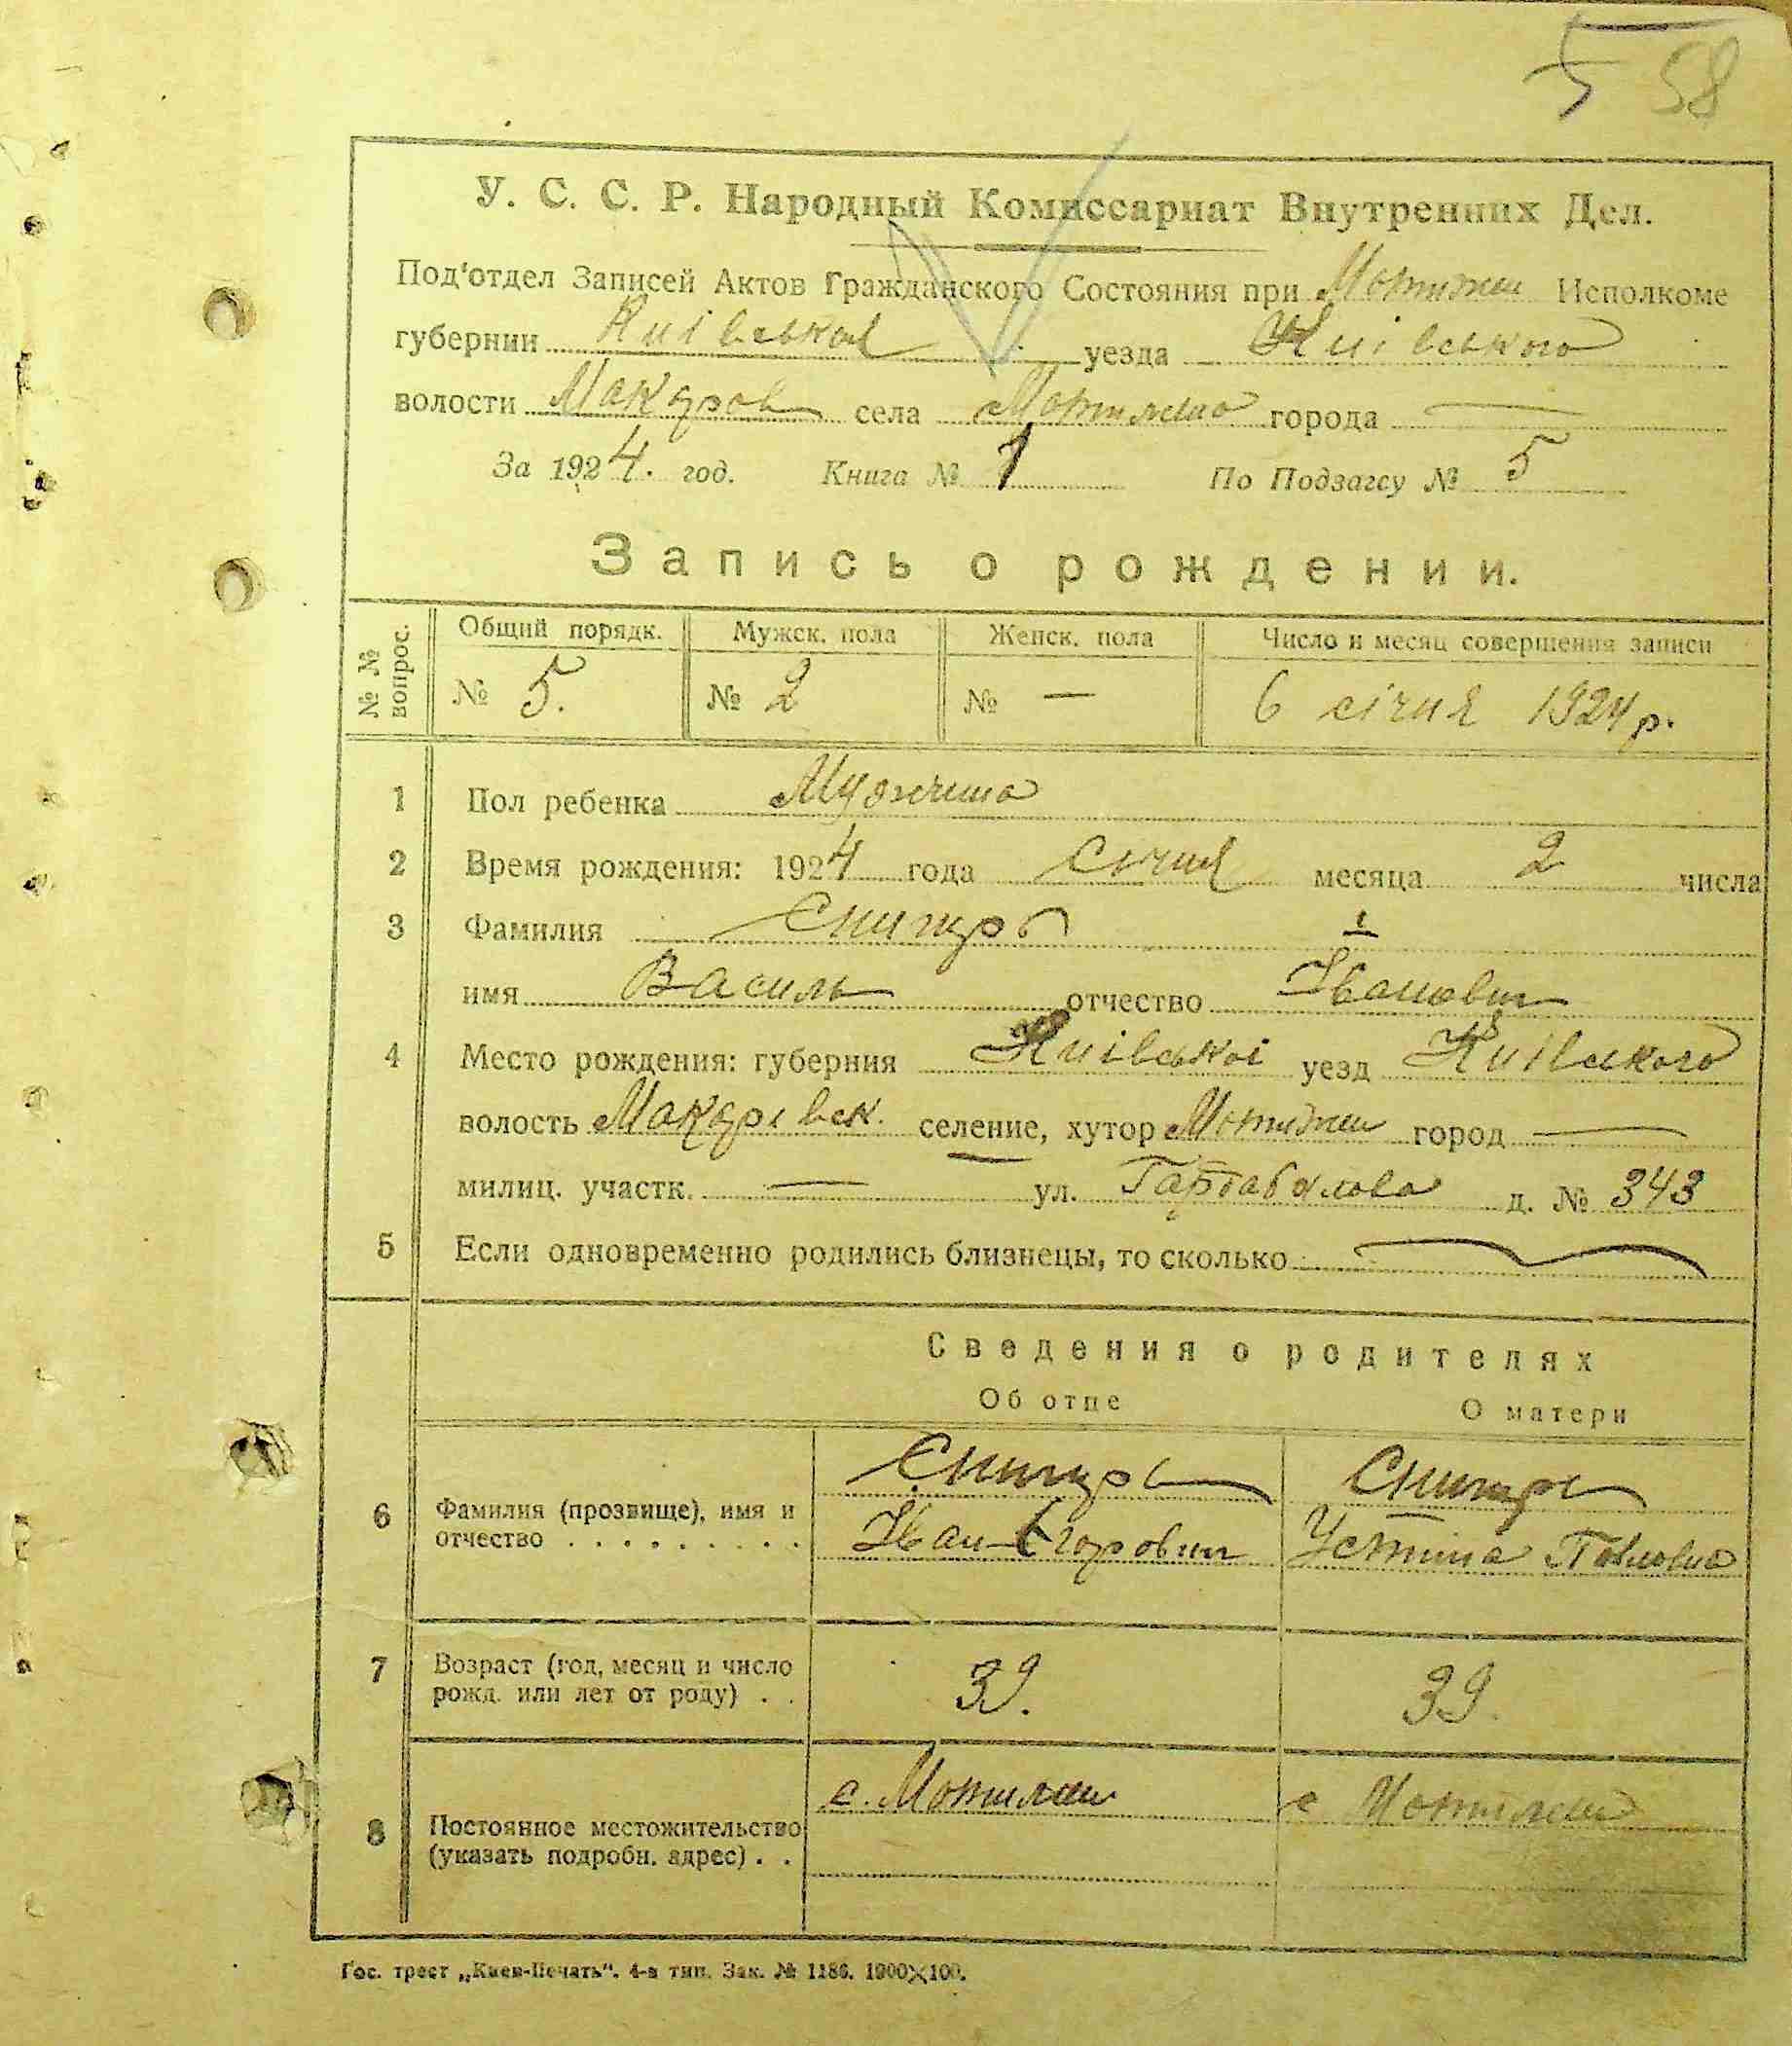 5 58
У. С. С. Р. Народный Комиссариат Внутренних Дел.
Под'отдел Записей Актов Гражданского Состояния при Мотижин Исполкоме
губернии Київськоі уезда Київського
волости Макаров села Мотижина города —
За 1924. год. Книга № 1 По Подзагсу № 5
Запись о рождении.
№ № вопрос. Общий порядк. Мужск. пола Женск. пола Число и месяц совершения записи
№ 5. № 2 № — 6 січня 1924 р.
1 Пол ребенка Мужчина
2 Время рождения: 1924 года Січня месяца 2 числа
3 Фамилия
имя Василь отчество Іванович
4 Место рождения: губерния Київськоі уезд Київського
волость Макарівск. селение, хутор Мотижин город —
милиц. участк. — ул. д. № 343
5 Если одновременно родились близнецы, то сколько —
Сведения о родителях
Об отце О матери
6 Фамилия (прозвище), имя и
отчество . . . . . . . . . Іван Егорович Устина Павловна
7 Возраст (год, месяц и число
рожд. или лет от роду) . . 39. 39.
с. Мотижин с Мотижин
8 Постоянное местожительство
(указать подробн. адрес) . .
Гос. трест „Киев-Печать“. 4-я тип. Зак. № 1186. 1000×100.